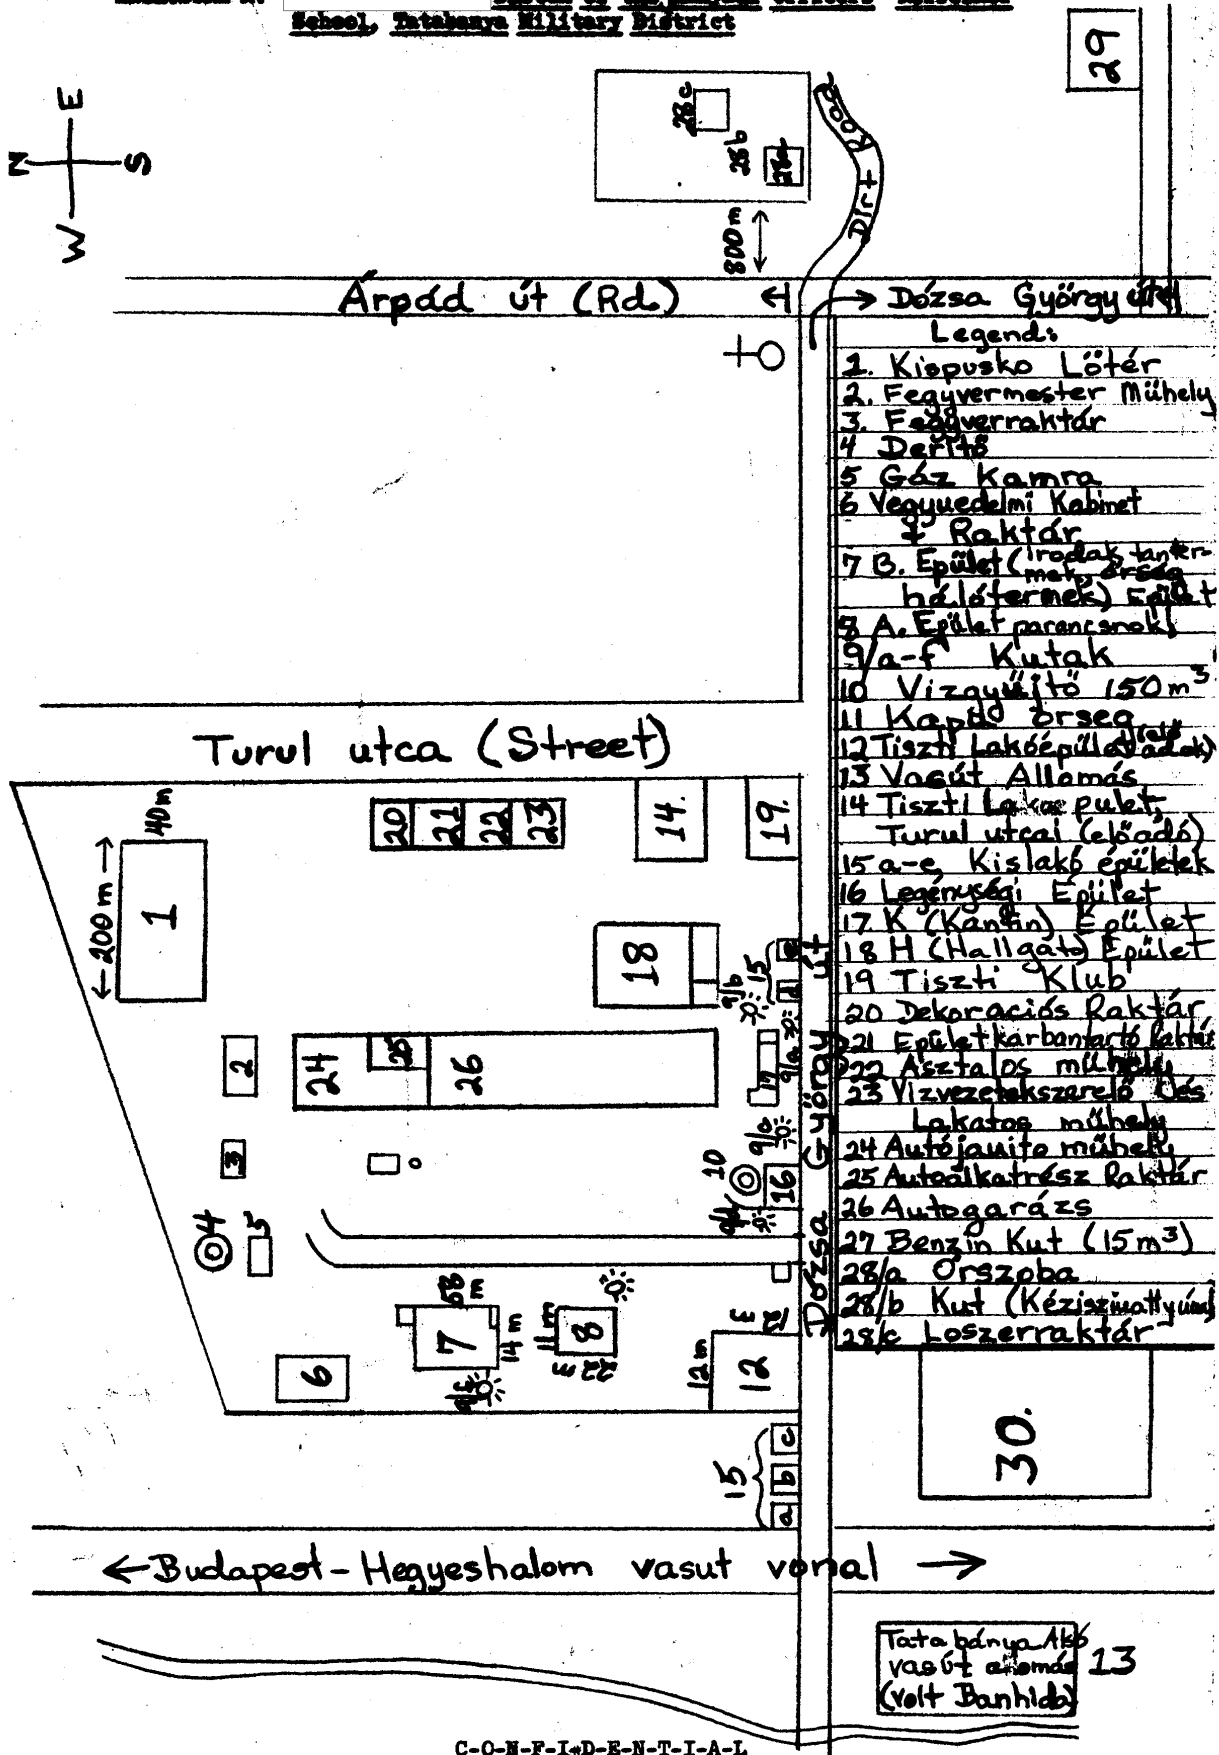 School, Tatabanya Military District
29
28c
28b
28a
Dirt Road
N
E
S
W
800m
Árpád út (Rd.)
Dózsa György út
Legend:
1. Kispuska Lőtér
2. Fegyvermester Műhely
3. Fegyverraktár
4 Derítő
5 Gáz Kamra
6 Vegyuedelmi Kabinet
+ Raktár
7 B. Epület (irodak, tanter-
mek, őrség
hálótermek) Epület
8 A. Epület parancsnoki
9/a-f Kutak
10 Vizgyüjtő 150m³
11 Kapu őrseg
12 Tiszti Lakóépület
13 Vasút Allomás
14 Tiszti
Turul utcai (előadó)
15 a-e, Kislakó épületek
16 Legénységi Epület
17. K (Kantin) Epület
18 H (Hallgató) Epület
19 Tiszti Klub
20 Dekorációs Raktár
21 Epület karbantartó Raktár
22 Asztalos műhely
23 Vizvezetekszerelő és
Lakatos műhely
24 Autójavito műhely
25 Autóalkatrész Raktár
26 Autogarázs
27 Benzin Kut (15m³)
28/a Őrszoba
28/b Kut (Kéziszivattyús)
28/c Loszerraktár
Turul utca (Street)
40m
200m
1
20
21
22
23
14.
19.
18
15
e
d
9/b
2
24
25
26
17
9/a
3
9/c
10
16
9/d
4
5
Dózsa György út
68 m
7
14 m
11 m
8
22 m
9/f
6
12m
12
15
a
b
c
30.
Budapest-Hegyeshalom vasut vonal
Tatabánya Alsó
vasút
(volt Banhida)
13
C-O-N-F-I-D-E-N-T-I-A-L